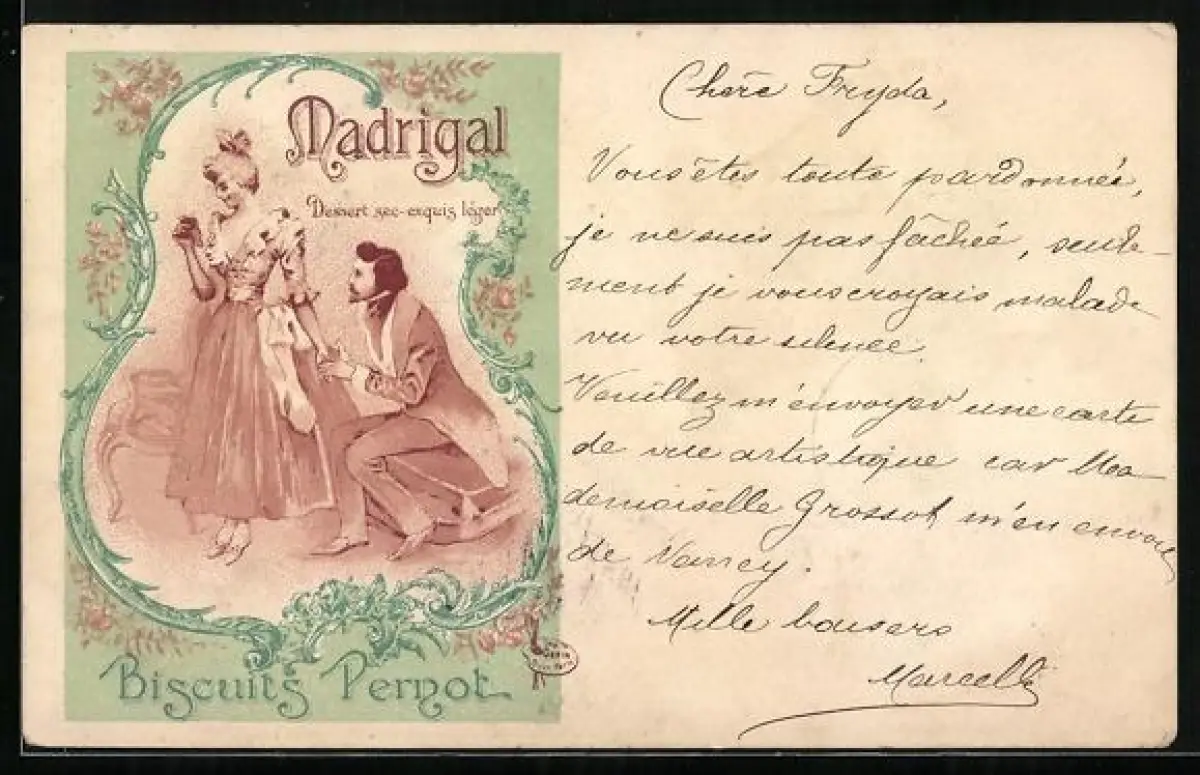 Madrigal
Dessert sec-exquis léger
Biscuits Pernot
Chère Fryda,
Vous êtes toute pardonnée,
je ne suis pas fâchée, seule-
ment je vous croyais malade
vu votre silence.
Veuillez m'envoyer une carte
de vue artistique car Ma
demoiselle Grossot m'en envoie
de Nancy.
Mille baisers
Marcelle